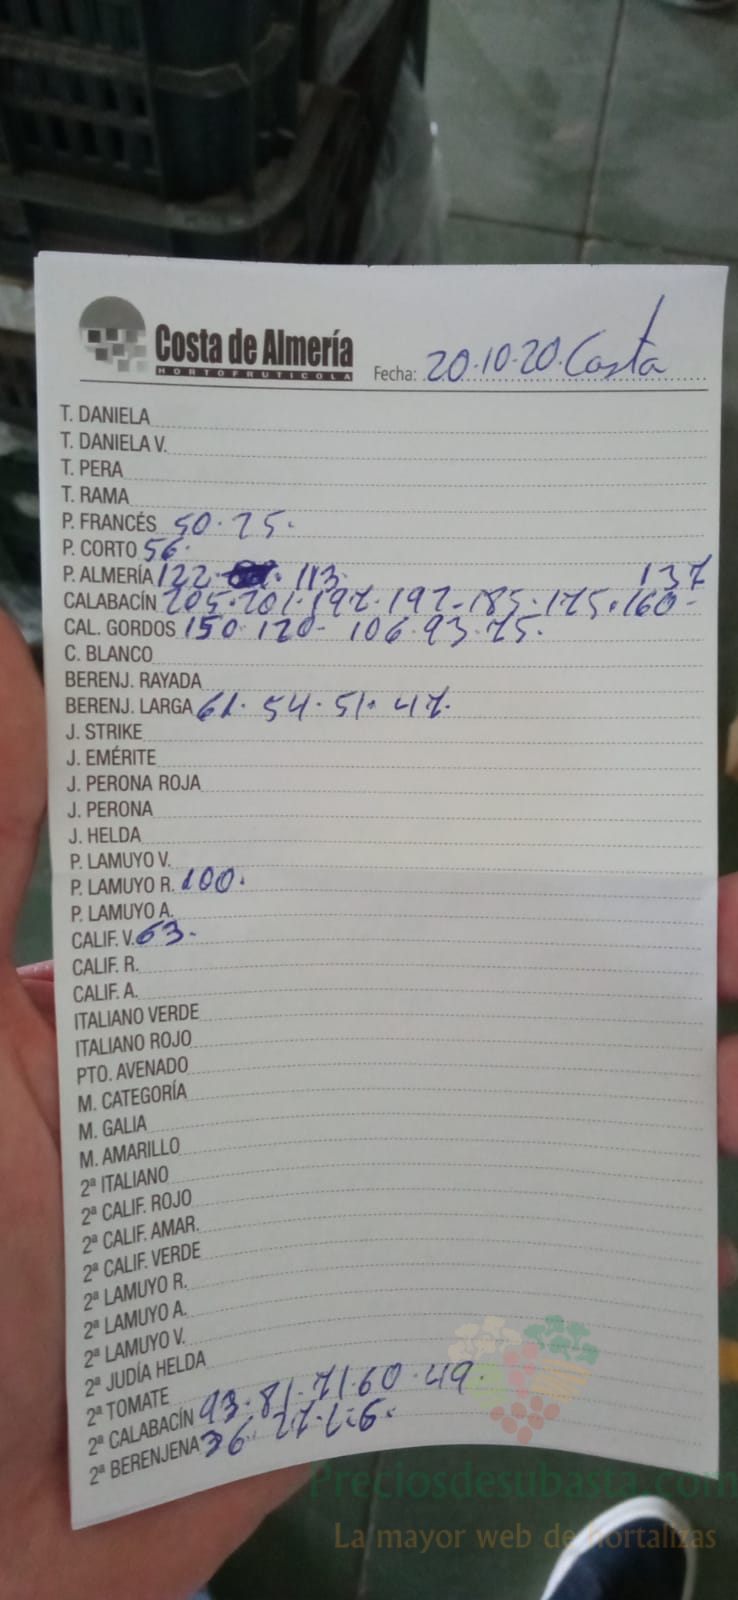 Costa de Almería
HORTOFRUTICOLA
Fecha: 20.10.20. Costa
T. DANIELA
T. DANIELA V.
T. PERA
T. RAMA
P. FRANCÉS 50. 75.
P. CORTO 56.
P. ALMERÍA 122. 113. 137
CALABACÍN 205. 201. 197. 192. 185. 175. 160-
CAL. GORDOS 150 120- 106. 93. 75.
C. BLANCO
BERENJ. RAYADA
BERENJ. LARGA 61. 54. 51. 47.
J. STRIKE
J. EMÉRITE
J. PERONA ROJA
J. PERONA
J. HELDA
P. LAMUYO V.
P. LAMUYO R. 100.
P. LAMUYO A.
CALIF. V. 63.
CALIF. R.
CALIF. A.
ITALIANO VERDE
ITALIANO ROJO
PTO. AVENADO
M. CATEGORÍA
M. GALIA
M. AMARILLO
2ª ITALIANO
2ª CALIF. ROJO
2ª CALIF. AMAR.
2ª CALIF. VERDE
2ª LAMUYO R.
2ª LAMUYO A.
2ª LAMUYO V.
2ª JUDÍA HELDA
2ª TOMATE
2ª CALABACÍN 93. 81. 71. 60. 49.
2ª BERENJENA 36. 27.
Preciosdesubasta.com
La mayor web de hortalizas